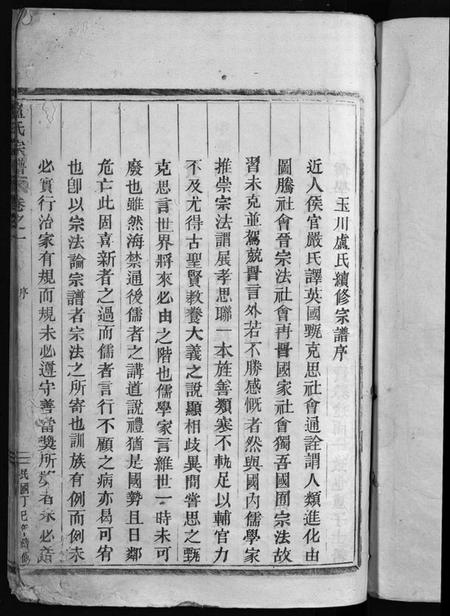 玉川盧氏續修宗譜序
近人侯官嚴氏譯英國甄克思社會通詮謂人類進化由
圖騰社會晉宗法社會再晉國家社會獨吾國囿宗法故
習未克並駕競晋言外若不勝感慨者然與國內儒學家
推崇宗法謂展孝思聯一本旌善類塞不軌足以輔官力
不及尤得古聖賢教養大義之說顯相歧異間嘗思之甄
克思言世界將來必由之階也儒學家言維世一時未可
廢也雖然海禁通後儒者之講道說禮猶是國勢且日鄰
危亡此固喜新者之過而儒者言行不顧之病亦曷可宥
也卽以宗法論宗譜者宗法之所寄也訓族有例而例未
必實行治家有規而規未必遵守善當獎所獎者未必善
盧氏宗譜 卷之一 序 民國丁巳年續修